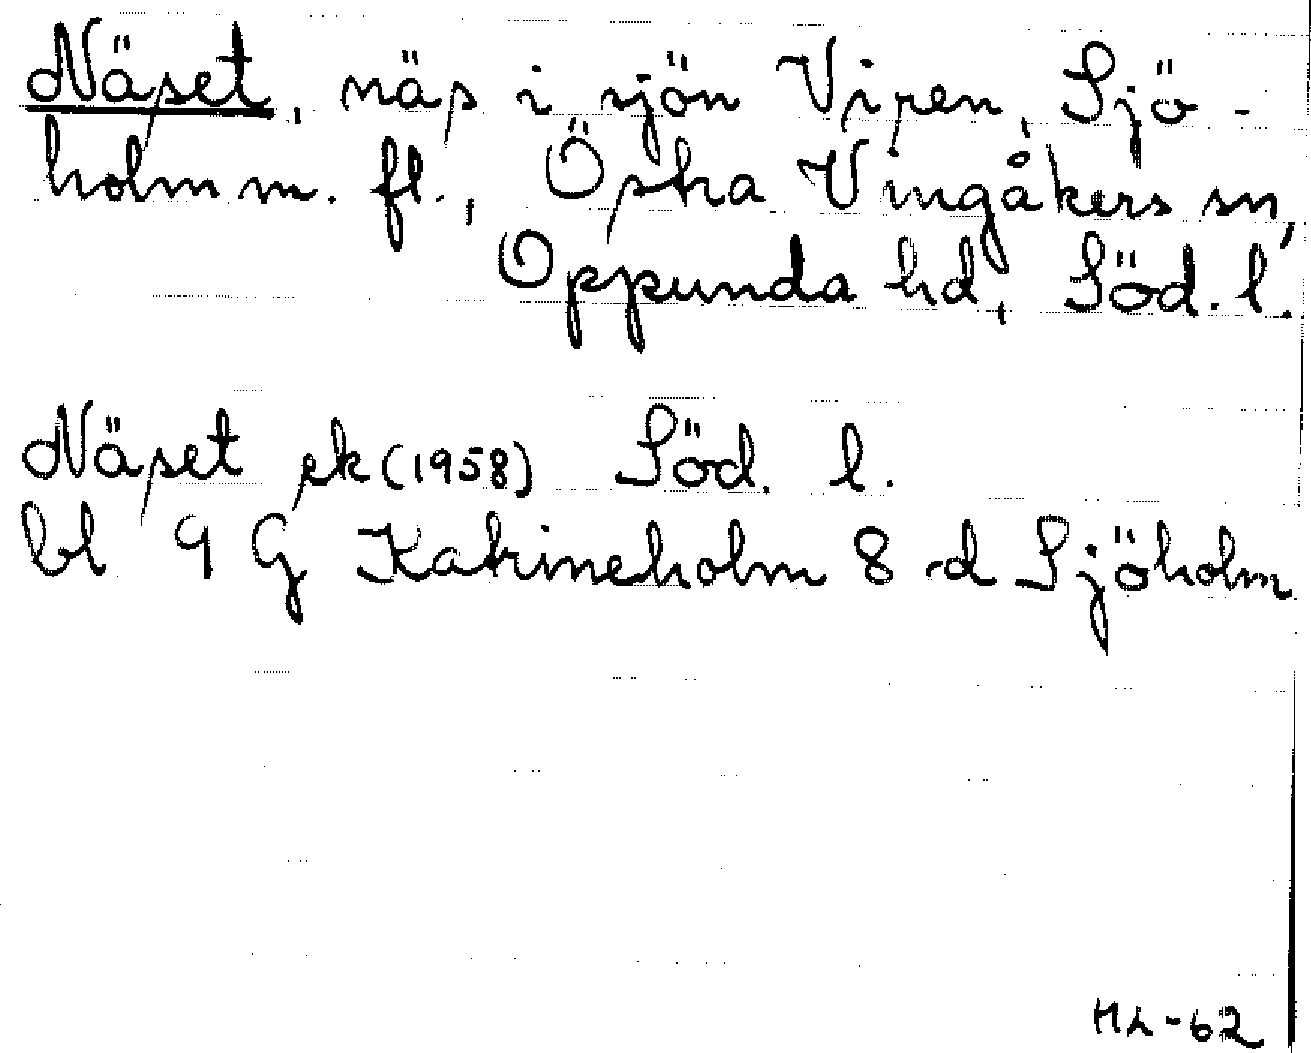 Näset, näs i sjön Viren, Sjö-
holm m. fl., Östra Vingåkers sn,
Oppunda hd, Söd. l.
Näset ek (1958) Söd. l.
bl 9 G Katrineholm 8 d Sjöholm
HL-62